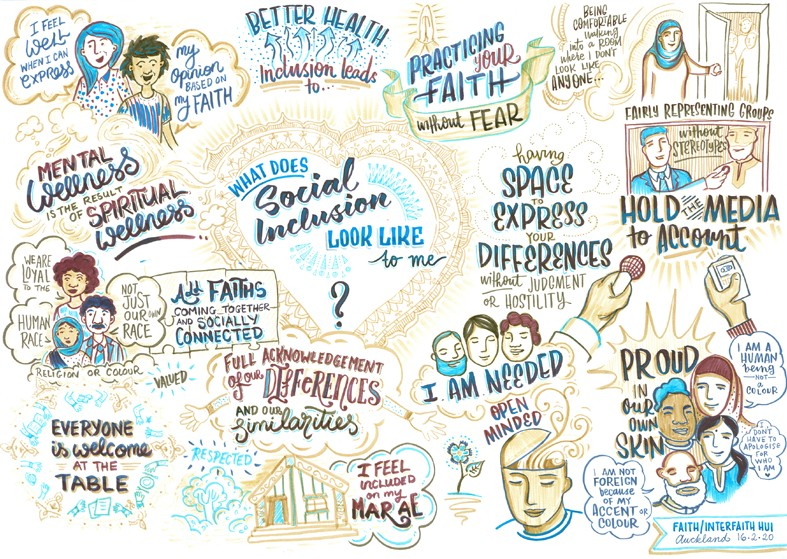 I FEEL
Well
WHEN I CAN
EXPRESS
my
Opinion
BASED ON
my FAITH
BETTER HEALTH
Inclusion leads
to...
PRACTICING
your
FAITH
without FEAR
BEING
COMFORTABLE
walking
into a ROOM
where I DON'T
LOOK LIKE
ANYONE...
FAIRLY REPRESENTING GROUPS
without
STEREOTYPES
HOLD THE MEDIA
to Account
MENTAL
Wellness
IS THE RESULT
OF SPIRITUAL
Wellness
WHAT DOES
Social
Inclusion
LOOK LIKE
to me
?
having
SPACE
TO
EXPRESS
YOUR
DIFFERENCES
without JUDGMENT
OR HOSTILITY
WE ARE
LOYAL
TO THE
HUMAN
RACE
NOT
JUST
OUR OWN
RACE
RELIGION OR COLOUR
All FAITHS
COMING TOGETHER
AND SOCIALLY
CONNECTED
FULL ACKNOWLEDGEMENT
of OUR DIFFERENCES
AND OUR
Similarities
I AM NEEDED
PROUD
IN
OUR
OWN
SKIN
I AM A
HUMAN
being
NOT
a
COLOUR
I
DON'T
HAVE TO
APOLOGISE
FOR
WHO
I AM
VALUED
EVERYONE
is welcome
AT THE
TABLE
RESPECTED
I FEEL
included
on my
MARAE
OPEN
MINDED
I AM NOT
FOREIGN
because
OF MY
ACCENT OR
COLOUR
FAITH/INTERFAITH HUI
Auckland 16.2.20